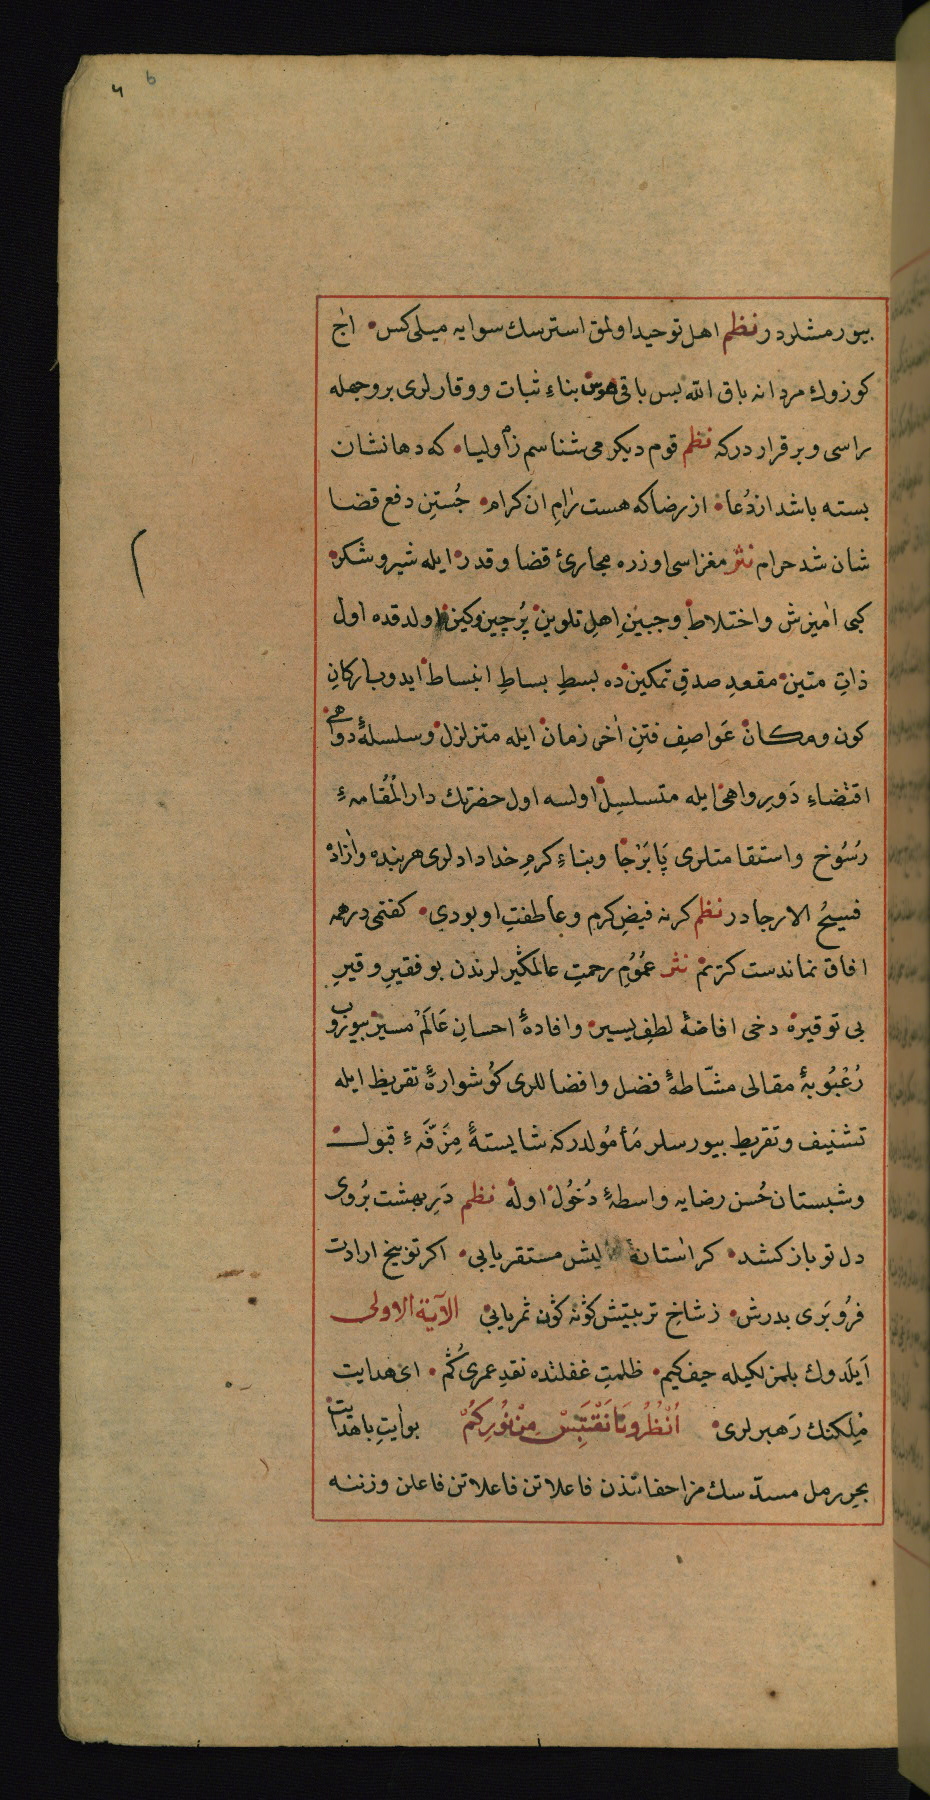 بیورمشلردر نظم اهل توحید اولمق استرسك سوایه میلی كس • اج
كوزوك مردانه باق الله بس باقی هوس بناء ثبات ووقارلری بر وجهله
راسی وبرقراردركه نظم قوم دیكر می شناسم ز اولیا • كه دهانشان
بسته باشد از دُعا • از رضا كه هست رام ان كرام • جُستنِ دفع قضا
شان شد حرام نثر مغزاسی اوزره مجاریٔ قضا وقدر ایله شیر وشكر
كبی امیزش واختلاط وجبینِ اهلِ تلوین پُر چین وكین اولدقده اول
ذاتِ متین مقعدِ صدقِ تمكین ده بسطِ بساطِ انبساط ایدوب اركانِ
كون ومكان عَواصِف فتنِ اٰخر زمان ایله متزلزل وسلسلۀ دواهی
اقتضاءِ دَورِ واهی ایله متسلسل اولسه اول حضرتك دار المُقامهءِ
رُسُوخ واستقامتلری پَا بَرْجا وبناءِ كرمِ خدادادلری هر بنده واٰزاد
فسیحُ الارجادر نظم كرنه فیضِ كرم وعاطفتِ او بودی • كفتمی در همه
افاق نماندست كرم نثر عُمُومِ رحمتِ عالمكیرلرندن بو فقیرِ وقیرِ
بی توقیره دخی افاضۀ لطفِ یسیر وافادۀ احسانِ عَالَمْ مسیر بیوروب
رُعْبُوبۀ مقالی مشّاطۀ فضل وافضاللری كوشوارۀ تقریظ ایله
تشنیف وتقریط بیورسلر مَأمُولدركه شایستۀ مِزَفّهءِ قبول
وشبستان حُسن رضایه واسطۀ دُخُول اوله نظم دَرِ بهشت بُروی
دل تو باز كشد • كر استانۀ لیش مستقر یابی • اكر تو بیخ ارادت
فرُو بَری بدرش • ز شاخ تربیتش كونه كون ثمر یابی الآیة الاولی
اَیلَدوك بلمزلكیله حیف كیم • ظلمتِ غفلتده نقدِ عمری كُم • ای هدایت
مُلكنك رَهبرلری • اُنْظُرُونَا نَقْتَبِسْ مِنْ نُورِكُمْ بو اٰیتِ باهدایت
بحرِ رمل مسدّسك مزاحفاتندن فاعلاتن فاعلاتن فاعلن وزننه